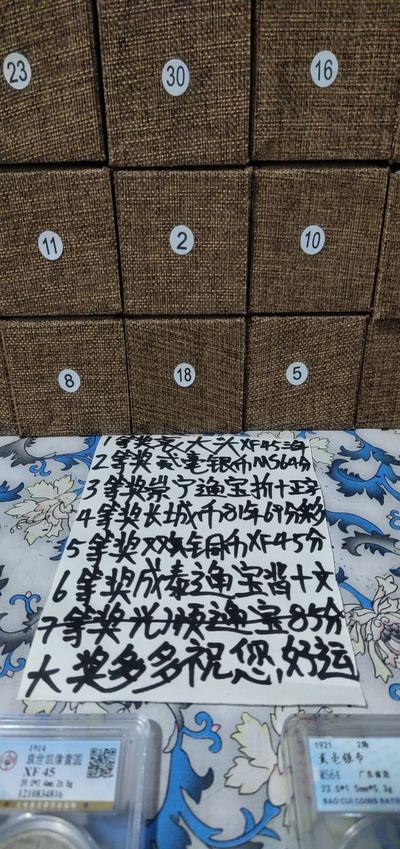 23 30 16
11 2 10
8 18 5
1等奖袁大头XF45分
2等奖贰毫银币MS64分
3等奖崇宁通宝折十正字
4等奖长城币81年69分彩
5等奖双旗铜币XF45分
6等奖咸泰通宝背十文
7等奖光顺通宝85分
大奖多多祝您好运
1914
袁世凯像壹圆
XF 45
1210834816
1921 2角
贰毫银币
MS64 广东省造
23.5*1.5mm*5.3g
BAO CUI COINS RATIN